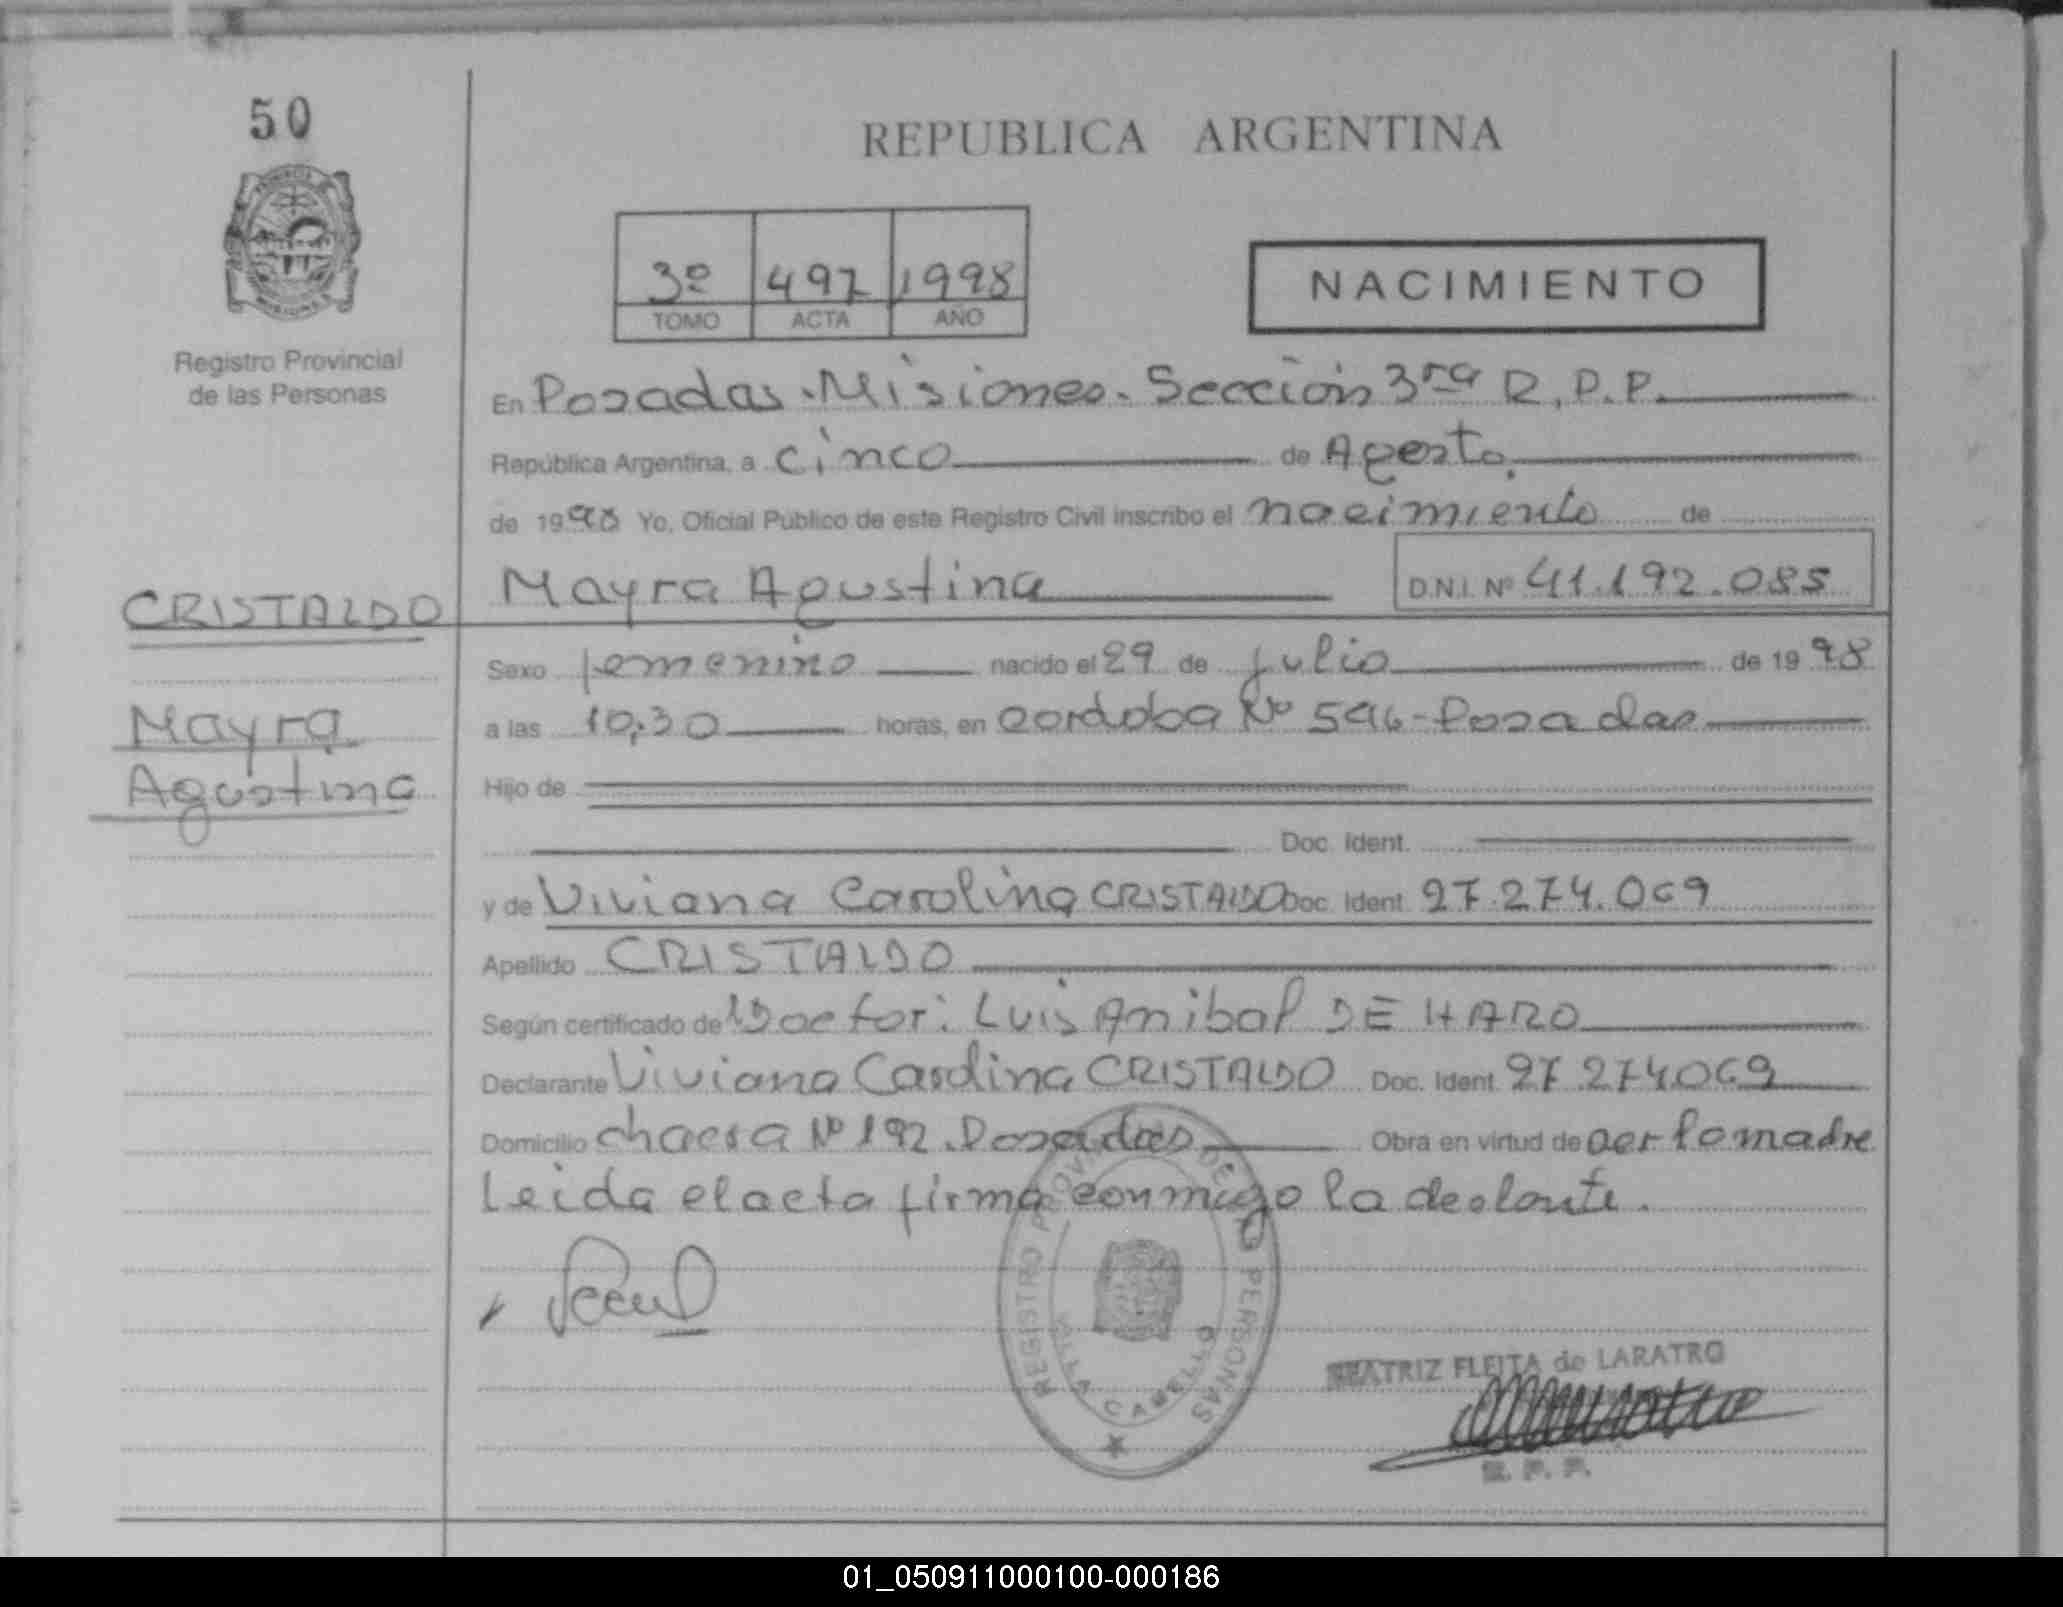 50
REPUBLICA ARGENTINA
3º 497 1998
TOMO ACTA AÑO
NACIMIENTO
Registro Provincial
de las Personas
En Posadas. Misiones. Sección 3ra R.P.P.
República Argentina, a cinco de Agosto
de 1998 Yo, Oficial Público de este Registro Civil inscribo el nacimiento de
Mayra Agustina D.N.I. Nº 41.192.085
CRISTALDO
Mayra
Agustina
Sexo femenino nacido el 29 de julio de 1998
a las 10:30 horas, en cordoba Nº 596 - Posadas
Hijo de
Doc. Ident.
y de Viviana Carolina CRISTALDO Doc. Ident. 27.274.069
Apellido CRISTALDO
Según certificado de Doctor: Luis Anibal DE HARO
Declarante Viviana Carolina CRISTALDO Doc. Ident. 27.274069
Domicilio chacra Nº 192. Posadas Obra en virtud de ser la madre
Leida el acta firma conmigo la
REGISTRO PROVINCIAL DE LAS PERSONAS
VILLA CABELLO
BEATRIZ FLEITA de LARATRO
R. P. P.
01_050911000100-000186